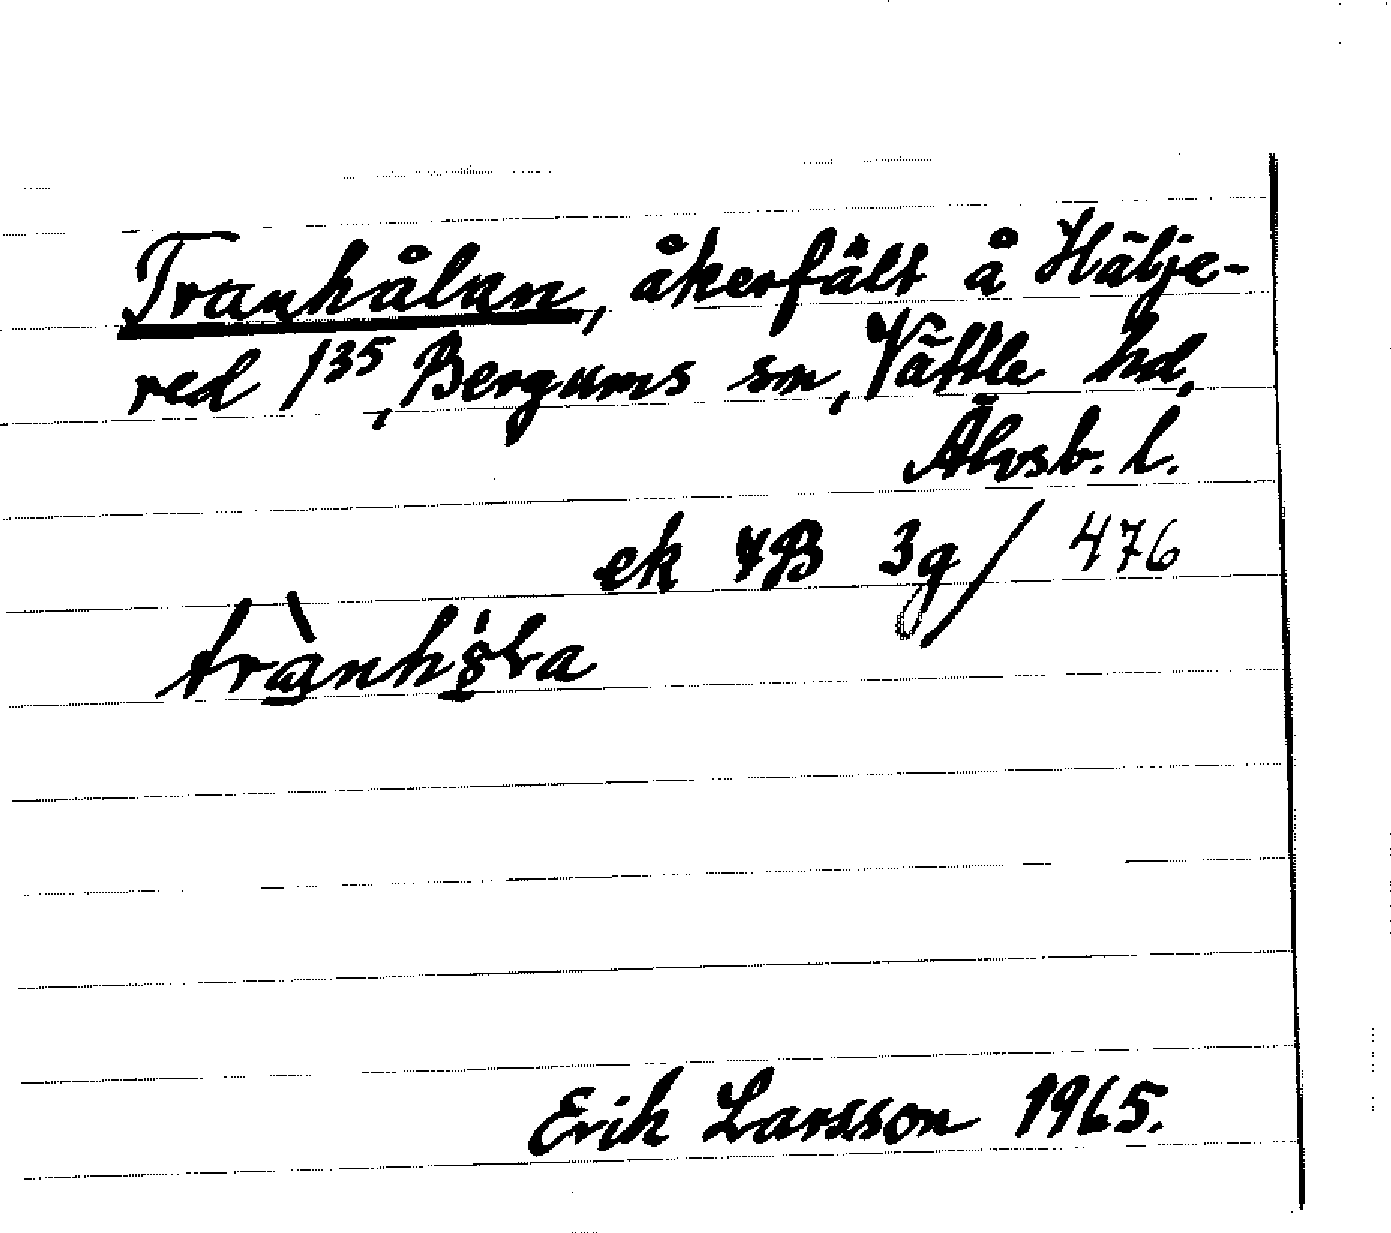 Tranhålan, åkerfält å Hälje-
red 1³⁵, Bergums sn, Vättle hd,
Älvsb. l.
ek 7B 3g / 476
Erik Larsson 1965.